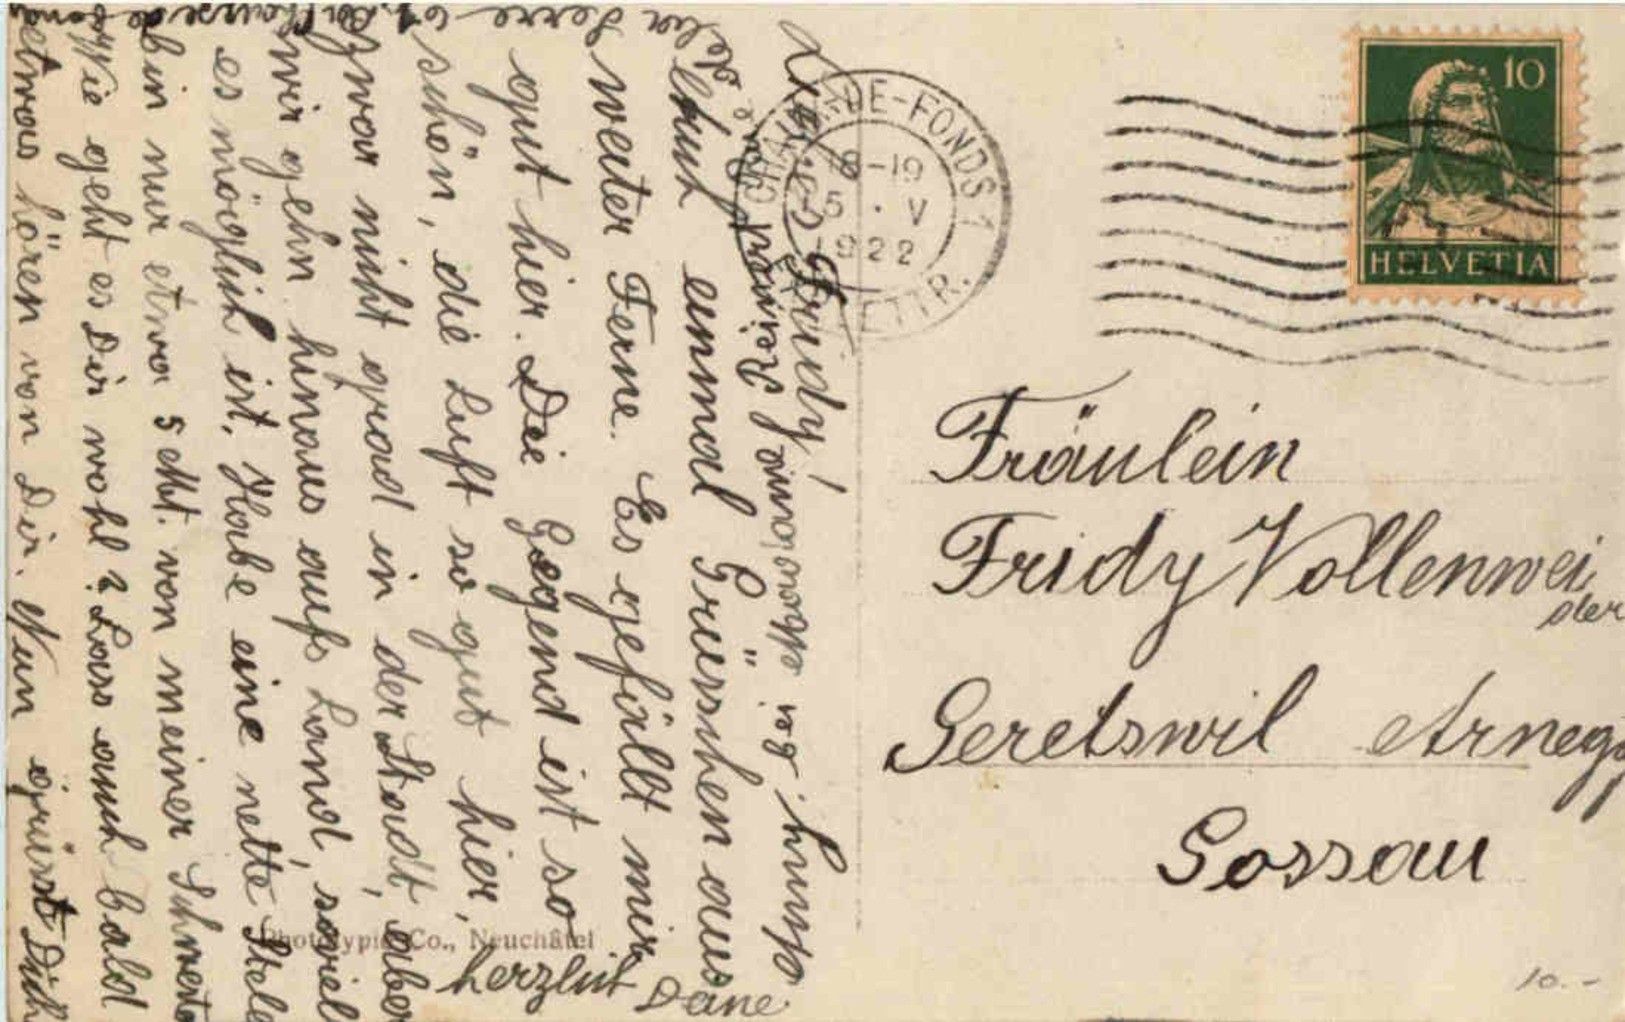 Liebe Fridy!
Elmut einmal Grüsschen aus
weiter Ferne. Es gefällt mir
gut hier. Die Gegend ist so
schön, die Luft so gut hier,
zwar nicht grad in der Stadt, aber
wir gehn hinaus aufs Land, soviel
es möglich ist. Habe eine nette Stelle
bin nur etwa 5 Mt. von meiner Schwester
Wie geht es Dir wohl? Lass auch bald
etwas hören von Dir. Nun grüsst Dich
herzlich Deine
Phototypie Co., Neuchâtel
CHAUX-DE-FONDS 1
18-19
25 . V
1922
LETTR.
10
HELVETIA
Fräulein
Fridy Vollenwei
der
Geretswil Arnegg
Gossau
10.-